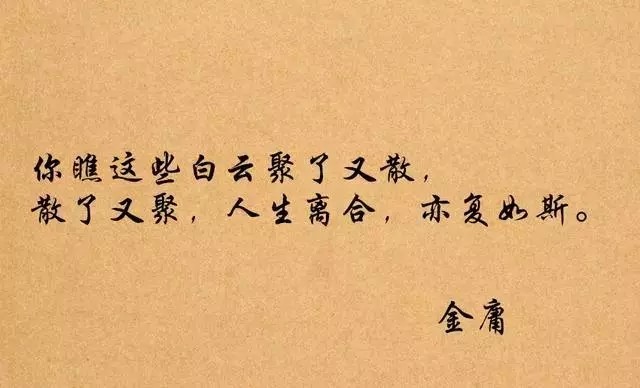 你瞧这些白云聚了又散，
散了又聚，人生离合，亦复如斯。
金庸